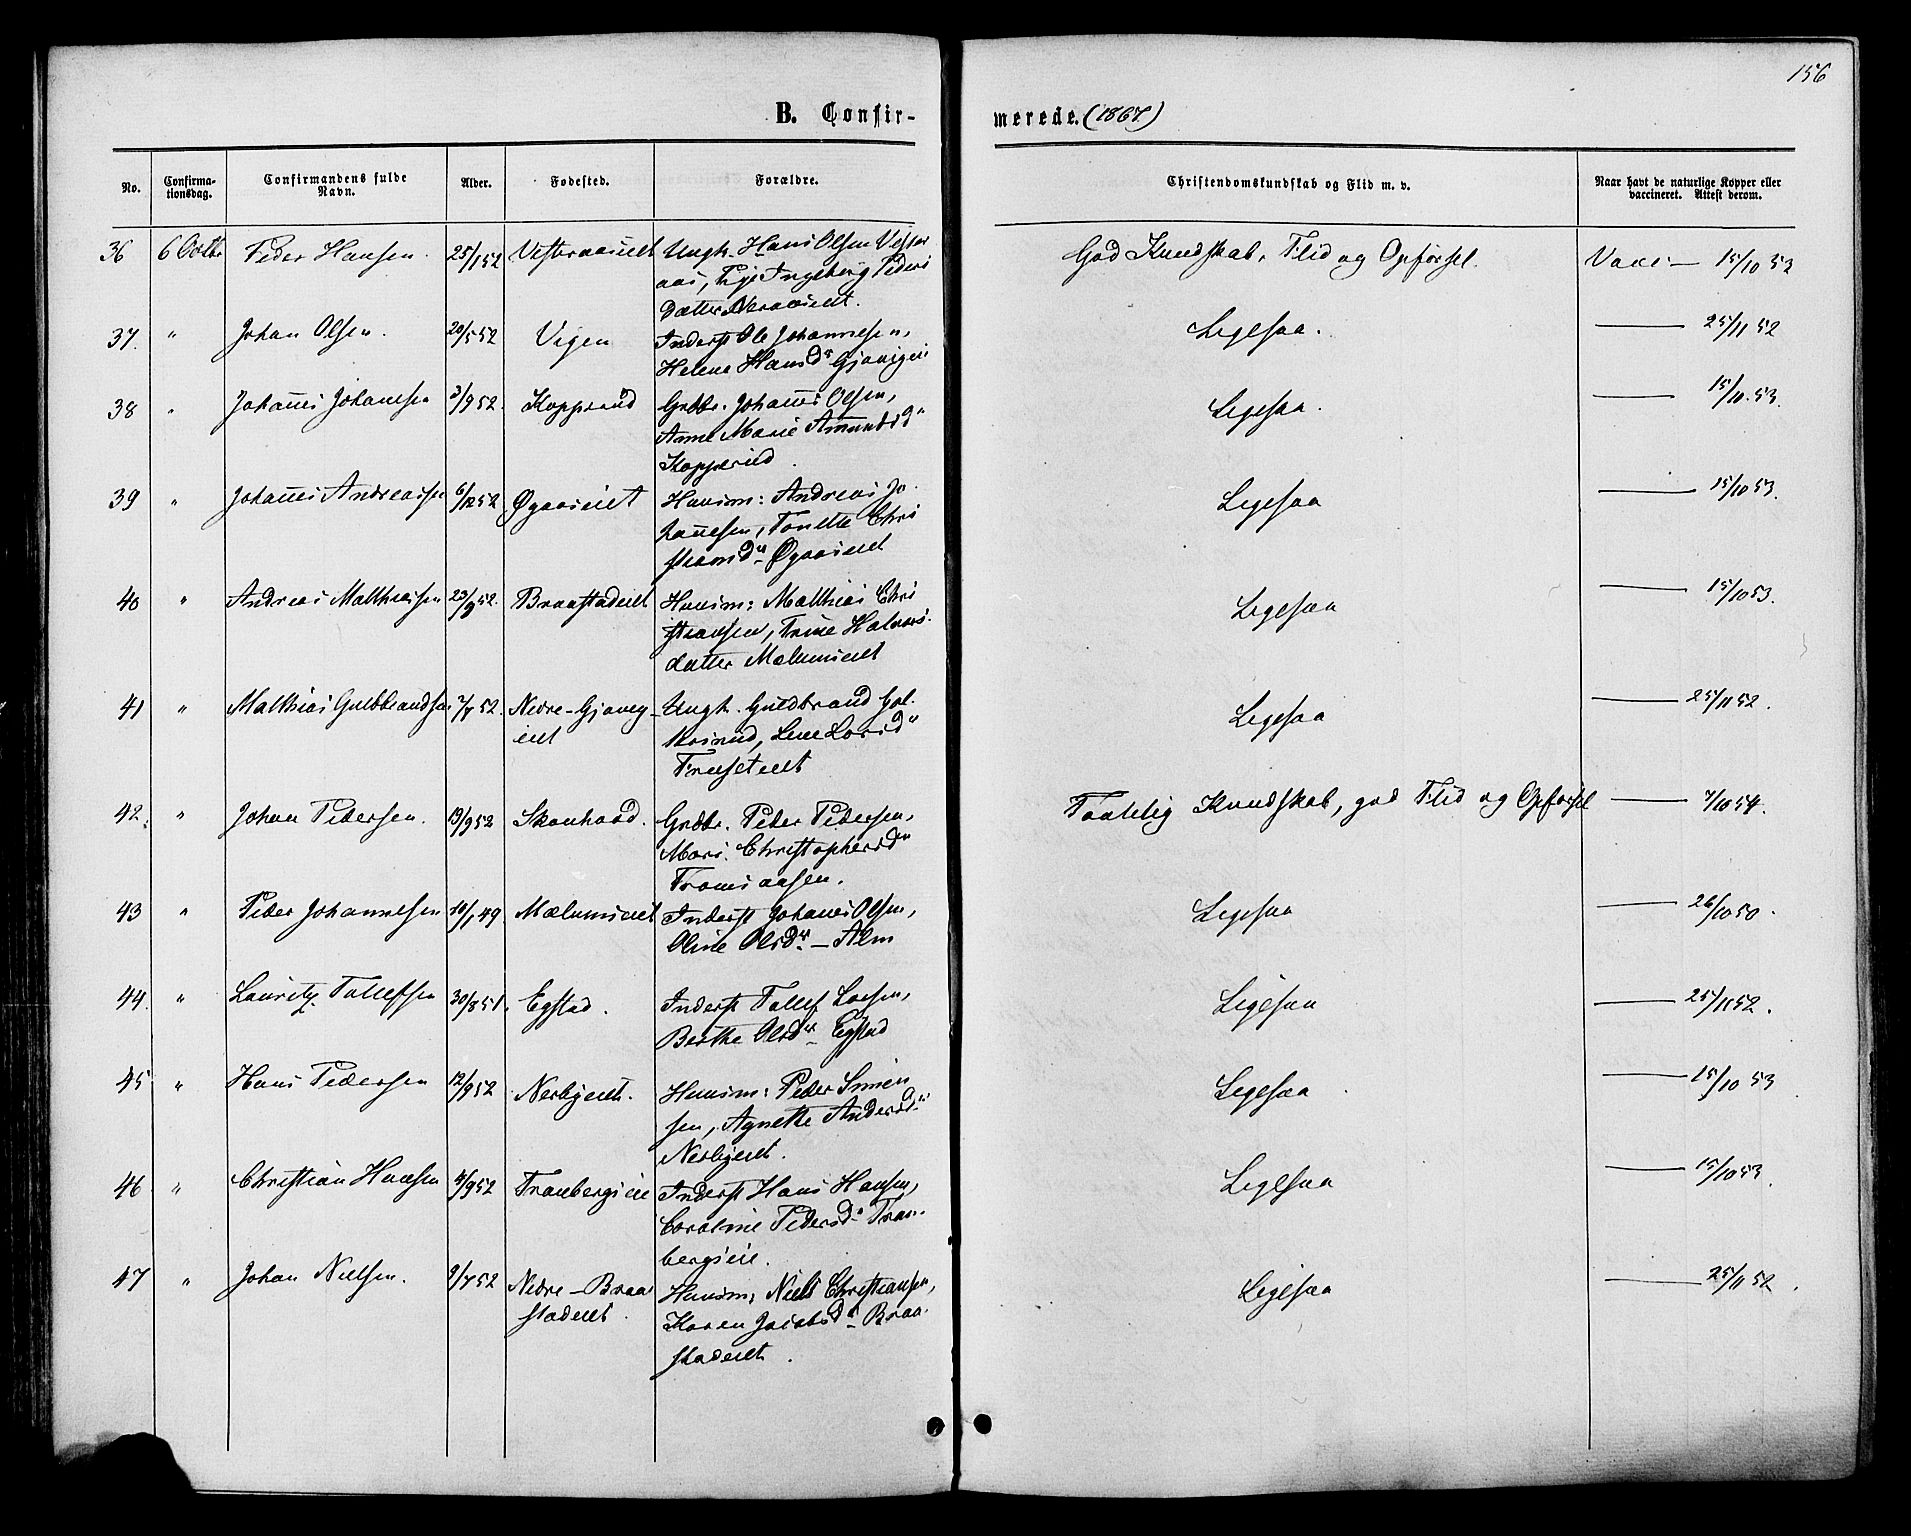 156
B. Confir-
merede. (1867)
No.
Confirma-
tionsdag.
Confirmandens fulde
Navn.
Alder.
Fødested.
Forældre.
Christendomskundskab og Flid m. v.
Naar havt de naturlige Kopper eller
vaccineret. Attest derom.
36 6 Octbr Peder Hansen. 25/1 52 Vesteraaseiet Ungk. Hans Olsen Vester
aas, Pige Ingeborg Peders
datter Neraaseiet.
God Kundskab, Flid og Opførsel. Vacc — 15/10 53
37. " Johan Olsen. 20/5 52 Vigen Inderst Ole Johannesen,
Helene Hansdr Gjøvigeie
Ligesaa. — 25/11 52
38 " Johannes Johannesen 3/9 52. Kopperud Grdbr. Johannes Olsen,
Anne Marie Amundsdr
Kopperud
Ligesaa. — 15/10 53.
39 " Johannes Andreassen 6/12 52 Øgaardseiet Huusm: Andreas Jo
hannesen, Tonette Chri
stiansdr Øgaardseiet
Ligesaa — 15/10 53.
40 " Andreas Matthiassen 23/9 52. Braastadeiet Huusm: Matthias Chri
stiansen, Trine Halvors-
datter Mælumseiet
Ligesaa — 15/10 53.
41 " Matthias Guldbrandsen 7/8 52. Nedre-Gjøvig-
eiet
Ungk. Guldbrand
Ligesaa — 25/11 52.
42. " Johan Pedersen. 13/9 52 Grdbr. Peder Pedersen,
Mari Christophersdr
Ligesaa
Taalelig Kundskab, god Flid og Opførsel — 7/10 54.
43 " Peder Johannesen 10/1 49 Mælumseiet Inderst Johannes Olsen,
Oline Olsdr — Alm
Ligesaa — 26/10 50.
44. " Lauritz Tollefsen 30/8 51. Egstad. Inderst Tollef Larsen,
Berthe Olsdr — Egstad
Ligesaa — 25/11 52.
45 " Hans Pedersen 12/9 52 Nerbyeiet. Huusm: Peder Simen
sen, Agnethe Andersdr
Nerbyeiet.
Ligesaa — 15/10 53
46 " Christian Hansen 4/9 52 Tranbergseie Inderst Hans Hansen,
Caroline Pedersdr Tran-
bergseie.
Ligesaa — 15/10 53.
47 " Johan Nielsen. 9/7 52 Nedre-Braa
stadeiet.
Huusm: Niels Christiansen,
Karen Jacobsdr — Braa-
stadeiet.
Ligesaa — 25/11 52.